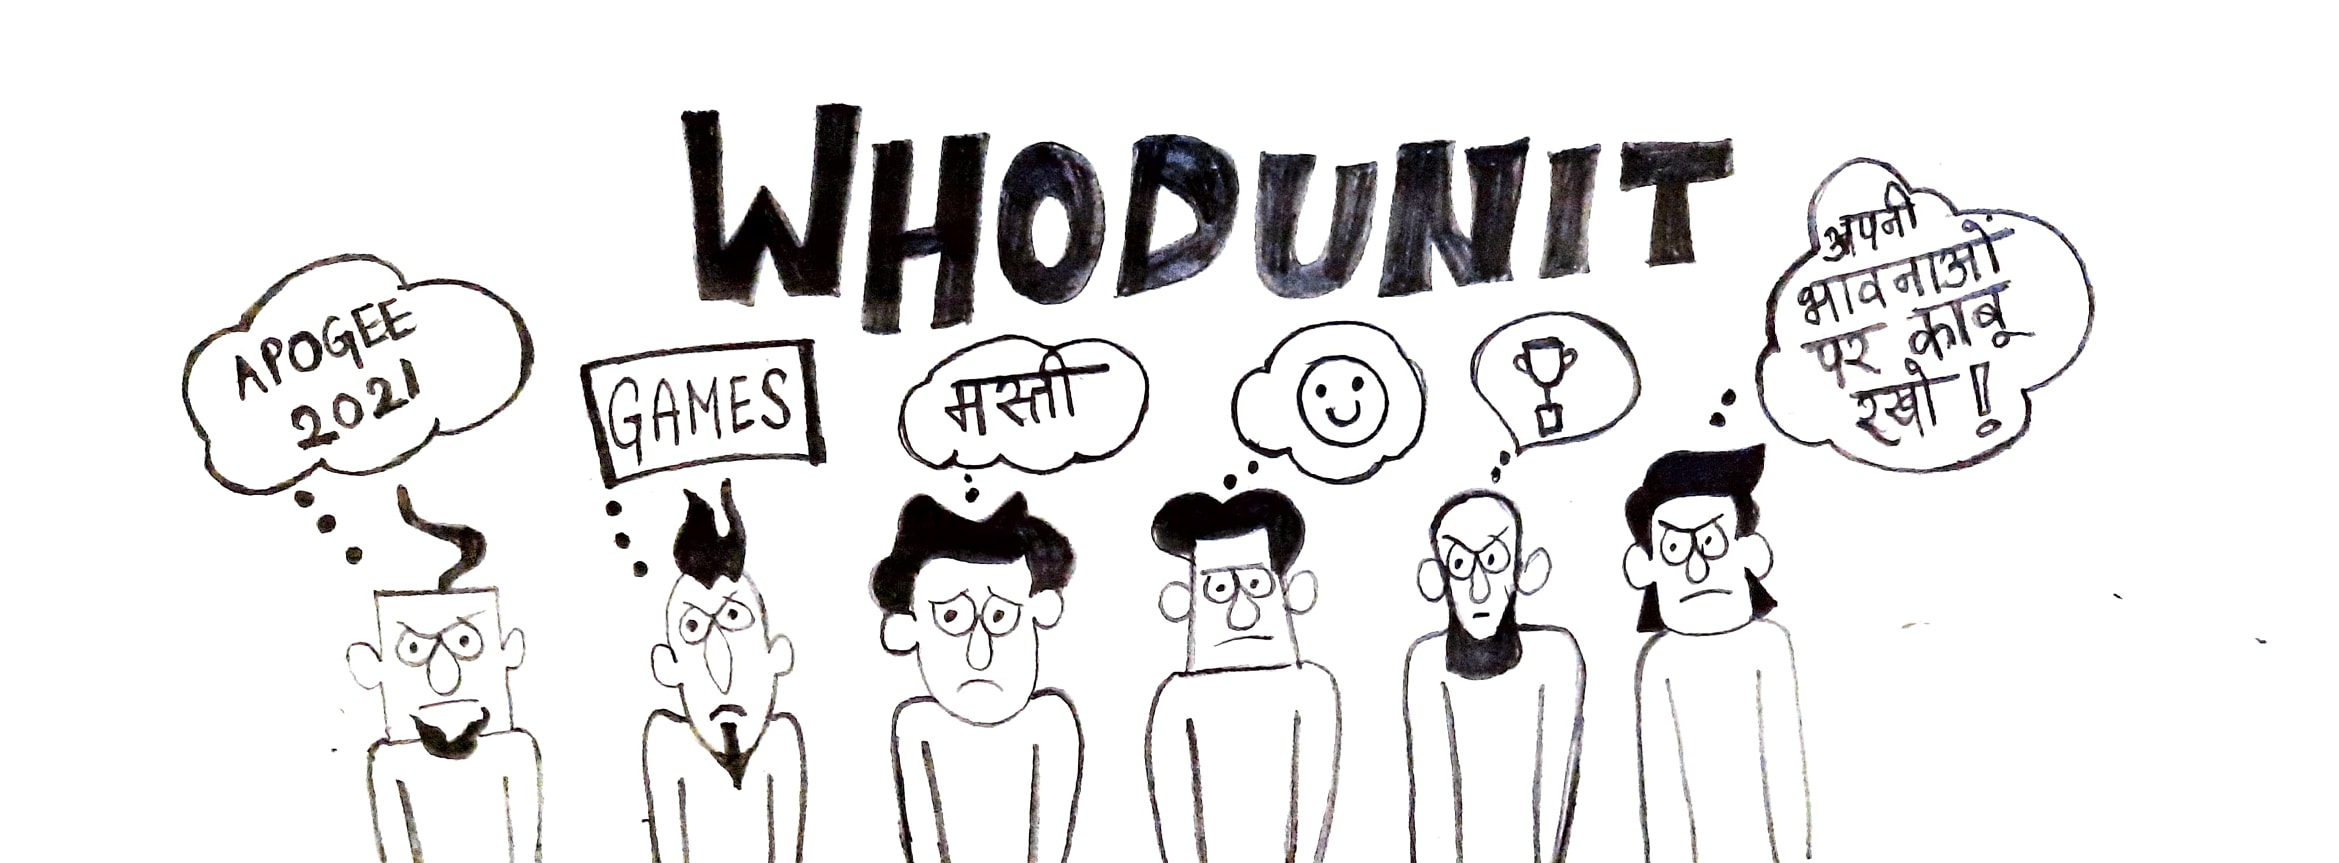 WHODUNIT
APOGEE
2021
GAMES
मस्ती
अपनी
भावनाओं
पर काबू
रखो !